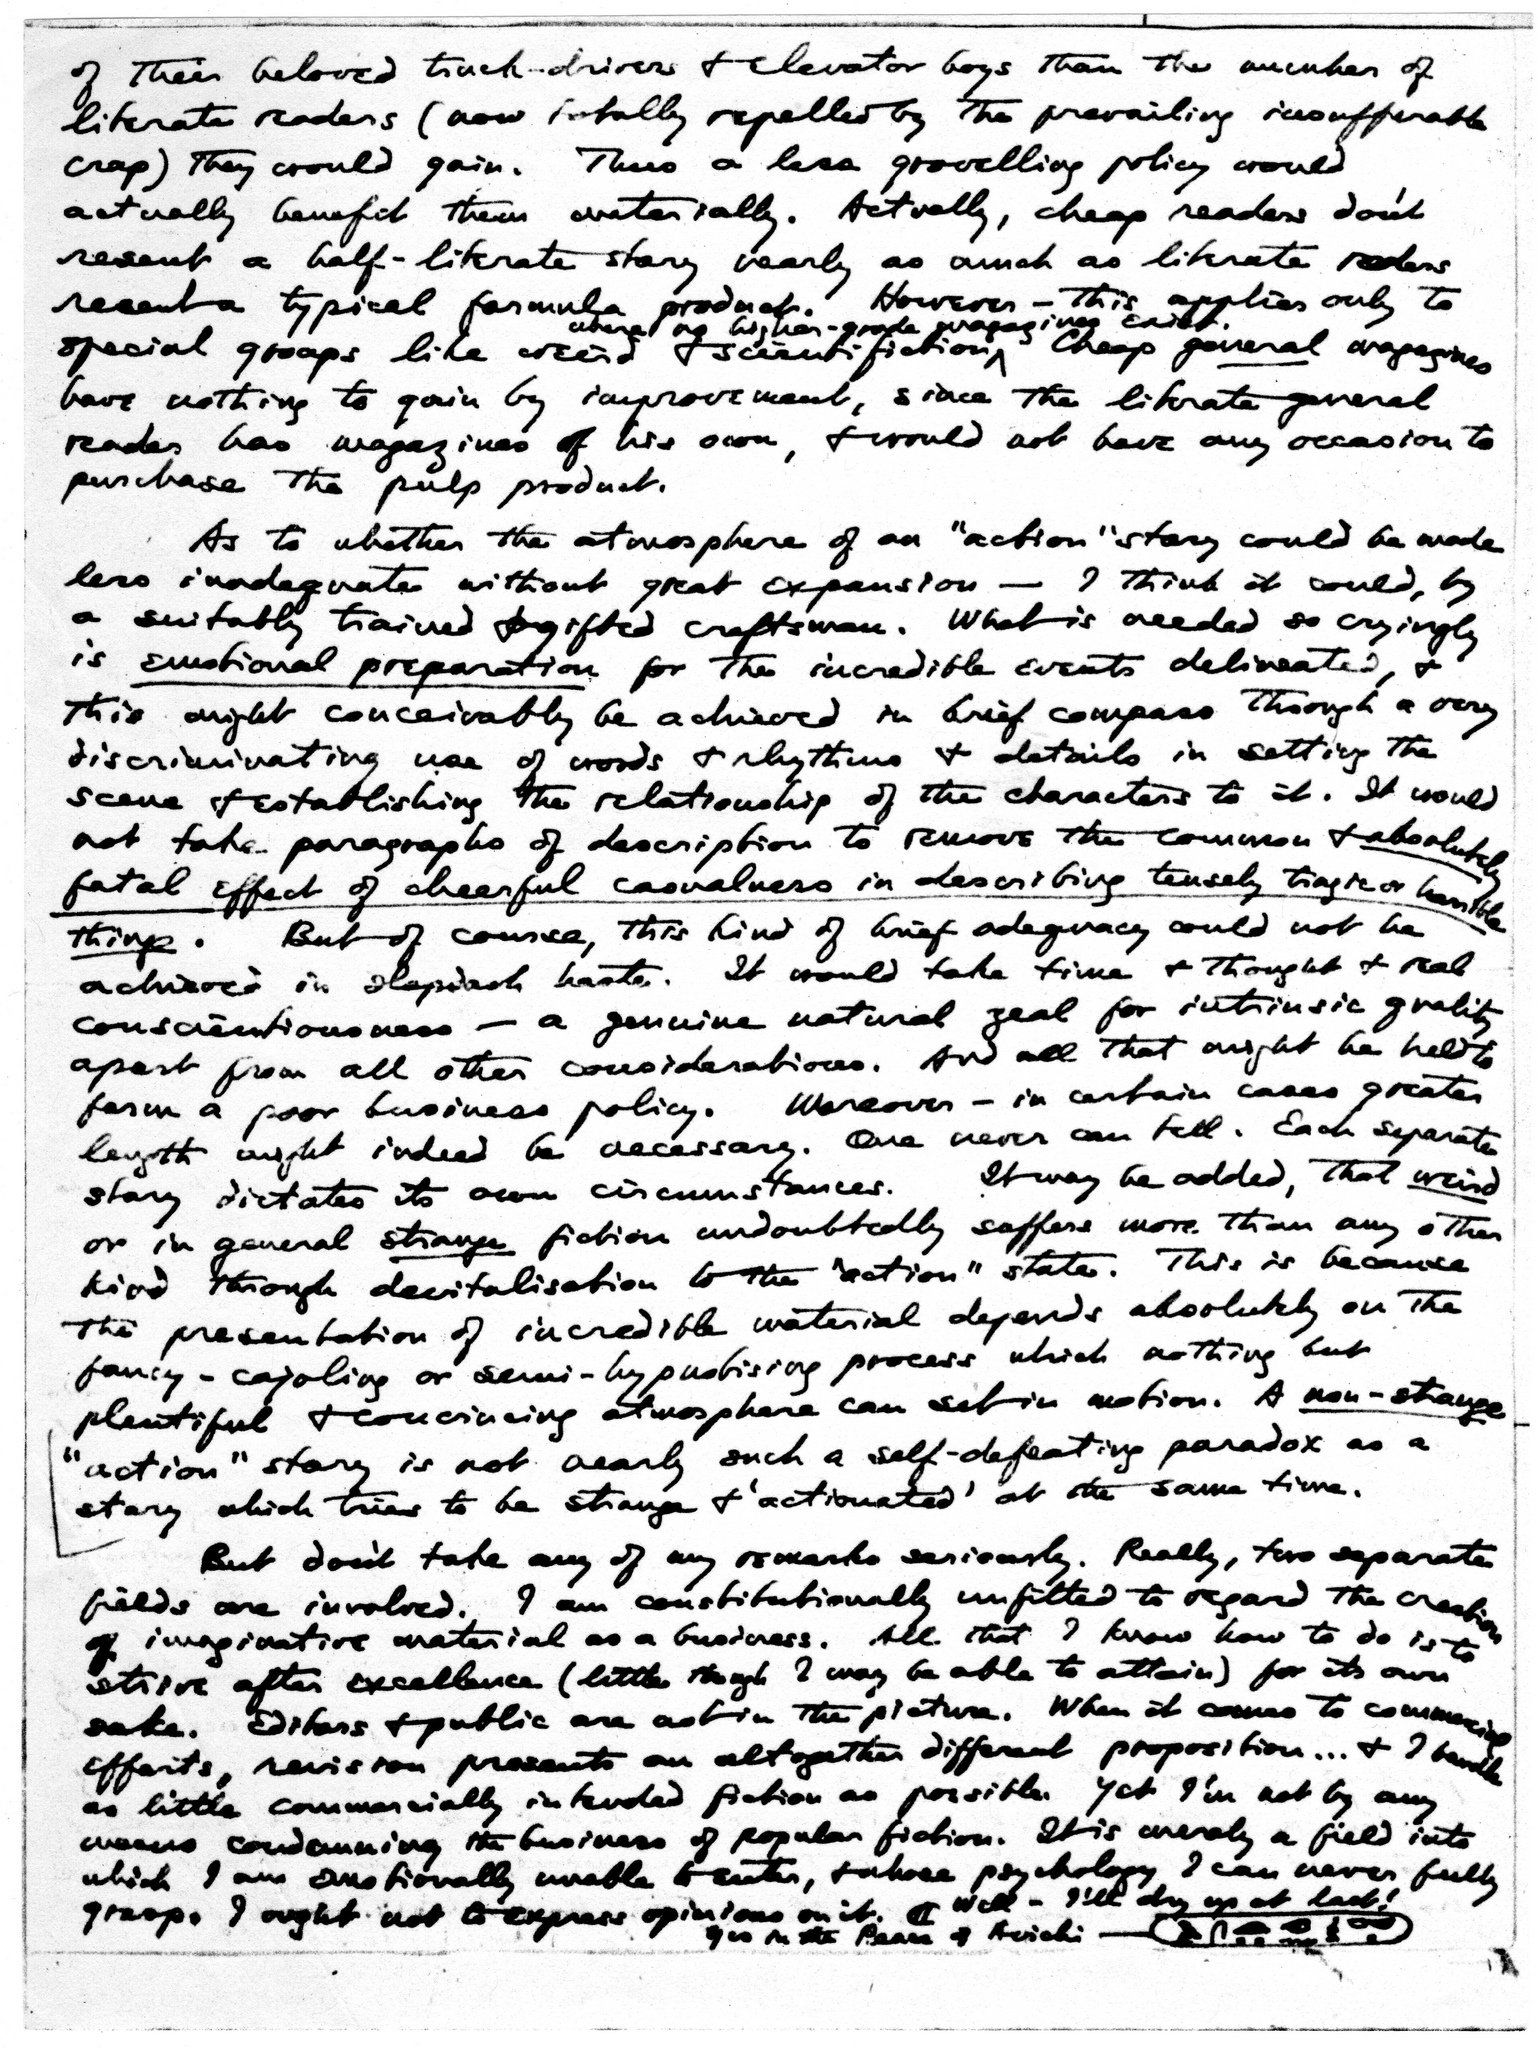 of their beloved truck-drivers & elevator boys than the number of
literate readers (now totally repelled by the prevailing insufferable
crap) they would gain. Thus a less grovelling policy would
actually benefit them materially. Actually, cheap readers don't
resent a half-literate story nearly as much as literate readers
resent a typical formula product. However – this applies only to
where no higher-grade magazines exist.
special groups like weird & scientifiction^ Cheap general magazines
have nothing to gain by improvement, since the literate general
reader has magazines of his own, & would not have any occasion to
purchase the pulp product.
As to whether the atmosphere of an "action" story could be made
less inadequate without great expansion — I think it could, by
a suitably trained & gifted craftsman. What is needed so cryingly
is emotional preparation for the incredible events delineated, &
this might conceivably be achieved in brief compass through a very
discriminating use of words & rhythms & details in setting the
scene & establishing the relationship of the characters to it. It would
not take paragraphs of description to remove the common & absolutely
fatal effect of cheerful casualness in describing tensely tragic or horrible
things. But of course, this kind of brief adequacy could not be
achieved in slapdash haste. It would take time & thought & real
conscientiousness — a genuine natural zeal for intrinsic quality
apart from all other considerations. And all that might be held to
form a poor business policy. Moreover – in certain cases greater
length might indeed be necessary. One never can tell. Each separate
story dictates its own circumstances. It may be added, that weird
or in general strange fiction undoubtedly suffers more than any other
kind through devitalisation to the "action" state. This is because
the presentation of incredible material depends absolutely on the
fancy-cajoling or semi-hypnotising process which nothing but
plentiful & convincing atmosphere can set in motion. A non-strange
"action" story is not nearly such a self-defeating paradox as a
story which tries to be strange & 'actionated' at the same time.
But don't take any of my remarks seriously. Really, two separate
fields are involved. I am constitutionally unfitted to regard the creation
of imaginative material as a business. All that I know how to do is to
strive after excellence (little though I may be able to attain) for its own
sake. Editors & public are not in the picture. When it comes to commercial
efforts, revision presents an altogether different proposition... & I handle
as little commercially intended fiction as possible. Yet I'm not by any
means condemning the business of popular fiction. It is merely a field into
which I am emotionally unable to enter, & whose psychology I can never fully
grasp. I ought not to express opinions on it. ¶ Well – I'll dry up at last!
Yrs in the Peace of Avichi —